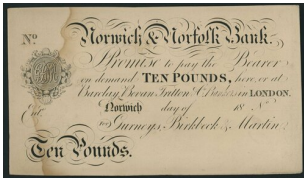 Norwich & Norfolk Bank.
No
I Promise to pay the Bearer
on demand TEN POUNDS, here, or at
Barclay, Bevan, Tritton & Co Bankers in LONDON.
Norwich day of 18 No
Entd
For Gurneys, Birkbeck & Martin
Ten Pounds.